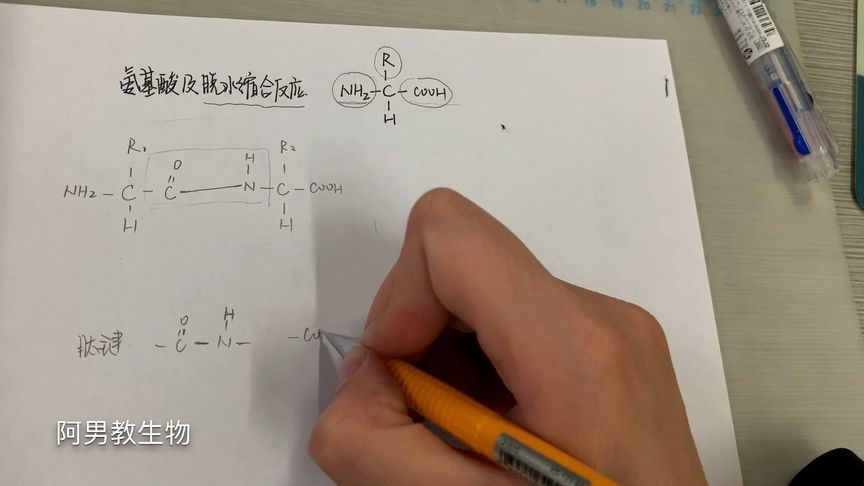 氨基酸及脱水缩合反应
R
NH₂-C-COOH
H
R₁ O H R₂
NH₂-C-C-N-C-COOH
H H
O H
肽键 -C-N- -CO
阿男教生物
17 18 19 20 21 22